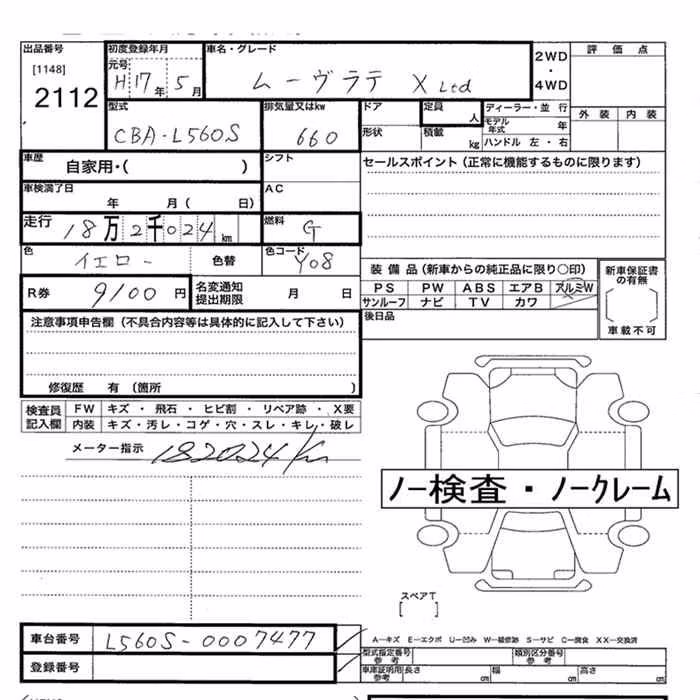 出品番号 初度登録年月 車名・グレード 2WD・4WD 評価点
[1148] 元号
2112 H17年5月 ムーヴラテ X Ltd
型式 排気量又はkw ドア 定員 人 ディーラー・並行 外装 内装
CBA-L560S 660 形状 積載 kg モデル年式 年
ハンドル 左・右
車歴 自家用・( ) シフト セールスポイント(正常に機能するものに限ります)
車検満了日 年 月( 日) AC
走行 18万2千024km 燃料 G
色 イエロー 色替 色コード Y08
装備品(新車からの純正品に限り〇印) 新車保証書の有無
R券 9100円 名変通知提出期限 月 日
PS PW ABS エアB アルミW
サンルーフ ナビ TV カワ [ ]
後日品 車載不可
注意事項申告欄(不具合内容等は具体的に記入して下さい)
修復歴 有(箇所 )
検査員記入欄 FW キズ・飛石・ヒビ割・リペア跡・X要
内装 キズ・汚レ・コゲ・穴・スレ・キレ・破レ
メーター指示 182024km
ノー検査・ノークレーム
スペアT
[ ]
車台番号 L560S-0007477
A―キズ E―エクボ U―凹み W―補修跡 S―サビ C―腐食 XX―交換済
登録番号 型式指定番号参考 類別区分番号参考
車庫証明用参考 長さ cm 幅 cm 高さ cm